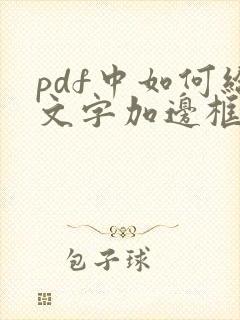 pdf中如何給
文字加邊框
包子球